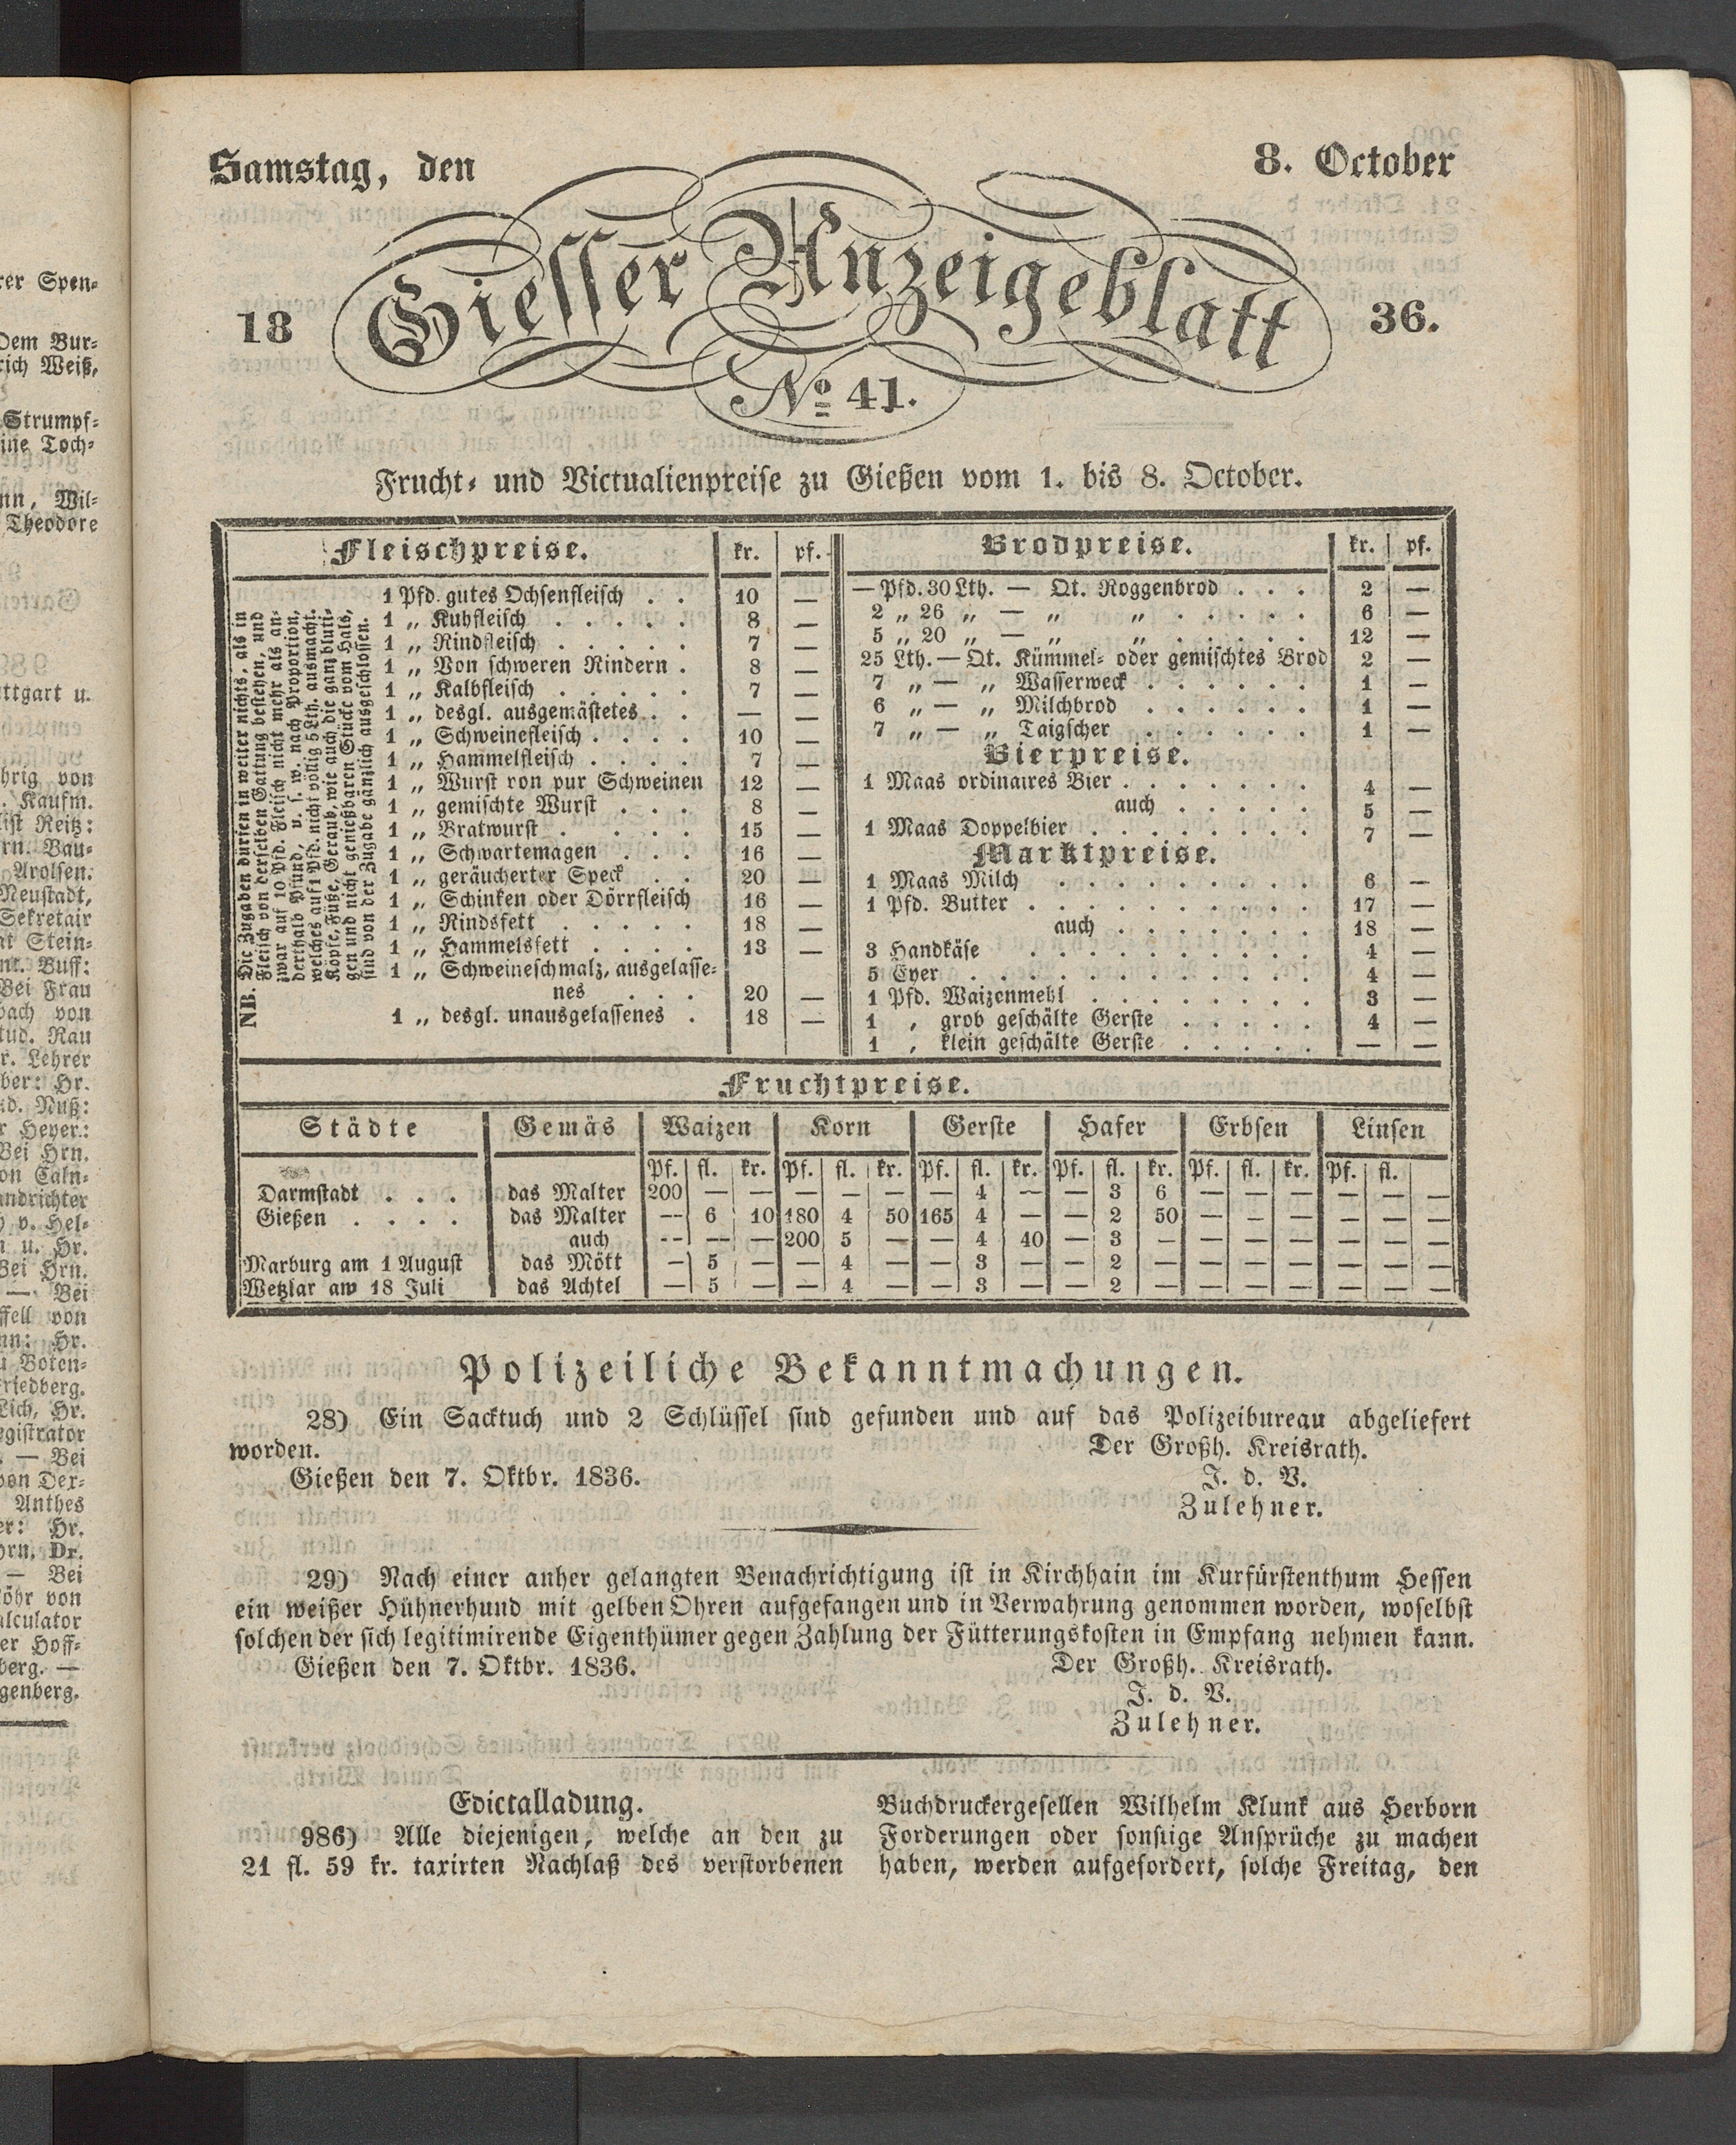 Samstag, den 8. October
18 Giesser Anzeigeblatt 36.
No 41.
Frucht- und Victualienpreise zu Gießen vom 1. bis 8. October.
Fleischpreise. kr. pf.
1 Pfd. gutes Ochsenfleisch . . 10 —
1 „ Kuhfleisch . . . . . 8 —
1 „ Rindfleisch . . . . . 7 —
1 „ Von schweren Rindern . 8 —
1 „ Kalbfleisch . . . . . 7 —
1 „ desgl. ausgemästetes . . — —
1 „ Schweinefleisch . . . . 10 —
1 „ Hammelfleisch . . . . 7 —
1 „ Wurst von pur Schweinen 12 —
1 „ gemischte Wurst . . . 8 —
1 „ Bratwurst . . . . 15 —
1 „ Schwartemagen . . . 16 —
1 „ geräucherter Speck . . 20 —
1 „ Schinken oder Dörrfleisch 16 —
1 „ Rindsfett . . . . . 18 —
1 „ Hammelsfett . . . . 13 —
1 „ Schweineschmalz, ausgelasse-
nes . . . 20 —
1 „ desgl. unausgelassenes . 18 —
NB. Die Zugaben dürfen in weiter nichts, als in
Fleisch von derselben Gattung bestehen, und
zwar auf 10 Pfd. Fleisch nicht mehr als an-
derthalb Pfund, u. s. w. nach Proportion,
welches auf 1 Pfd. nicht völlig 5 Lth. ausmacht.
Köpfe, Füße, Geraub, wie auch die ganz bluti-
gen und nicht genießbaren Stücke vom Hals,
sind von der Zugabe gänzlich ausgeschlossen.
Brodpreise. kr. pf.
— Pfd. 30 Lth. — Qt. Roggenbrod . . . 2 —
2 „ 26 „ — „ „ . . . . . 6 —
5 „ 20 „ — „ „ . . . . . 12 —
25 Lth. — Qt. Kümmel- oder gemischtes Brod 2 —
7 „ — „ Wasserweck . . . . . . 1 —
6 „ — „ Milchbrod . . . . . . 1 —
7 „ — „ Taigscher . . . . . . 1 —
Bierpreise.
1 Maas ordinaires Bier . . . . . . . 4 —
auch . . . . . 5 —
1 Maas Doppelbier . . . . . . . . 7 —
Marktpreise.
1 Maas Milch . . . . . . . . . 6 —
1 Pfd. Butter . . . . . . . . . . 17 —
auch . . . . . . . 18 —
3 Handkäse . . . . . . . . . . 4 —
5 Eyer . . . . . . . . . . . 4 —
1 Pfd. Waizenmehl . . . . . . . . 3 —
1 „ grob geschälte Gerste . . . . . 4 —
1 „ klein geschälte Gerste . . . . . — —
Fruchtpreise.
Städte Gemäs Waizen Korn Gerste Hafer Erbsen Linsen
Pf. fl. kr. Pf. fl. kr. Pf. fl. kr. Pf. fl. kr. Pf. fl. kr. Pf. fl.
Darmstadt . . . das Malter 200 — — — — — — 4 — — 3 6 — — — — — —
Gießen . . . . das Malter — 6 10 180 4 50 165 4 — — 2 50 — — — — — —
auch — — — 200 5 — — 4 40 — 3 — — — — — — —
Marburg am 1 August das Mött — 5 — — 4 — — 3 — — 2 — — — — — — —
Wetzlar am 18 Juli das Achtel — 5 — — 4 — — 3 — — 2 — — — — — — —
Polizeiliche Bekanntmachungen.
28) Ein Sacktuch und 2 Schlüssel sind gefunden und auf das Polizeibureau abgeliefert
worden. Der Großh. Kreisrath.
Gießen den 7. Oktbr. 1836. J. d. V.
Zulehner.
29) Nach einer anher gelangten Benachrichtigung ist in Kirchhain im Kurfürstenthum Hessen
ein weißer Hühnerhund mit gelben Ohren aufgefangen und in Verwahrung genommen worden, woselbst
solchen der sich legitimirende Eigenthümer gegen Zahlung der Fütterungskosten in Empfang nehmen kann.
Gießen den 7. Oktbr. 1836. Der Großh. Kreisrath.
J. d. V.
Zulehner.
Edictalladung.
986) Alle diejenigen, welche an den zu
21 fl. 59 kr. taxirten Nachlaß des verstorbenen
Buchdruckergesellen Wilhelm Klunk aus Herborn
Forderungen oder sonstige Ansprüche zu machen
haben, werden aufgefordert, solche Freitag, den